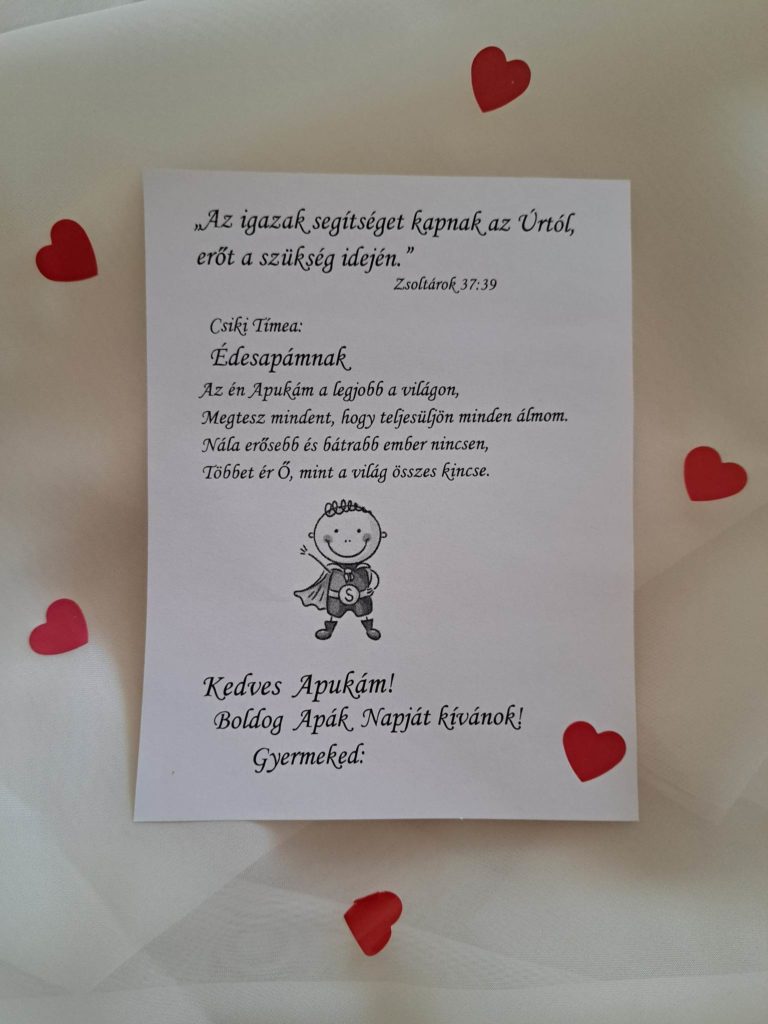 „Az igazak segítséget kapnak az Úrtól,
erőt a szükség idején.”
Zsoltárok 37:39
Csiki Tímea:
Édesapámnak
Az én Apukám a legjobb a világon,
Megtesz mindent, hogy teljesüljön minden álmom.
Nála erősebb és bátrabb ember nincsen,
Többet ér Ő, mint a világ összes kincse.
S
Kedves Apukám!
Boldog Apák Napját kívánok!
Gyermeked: